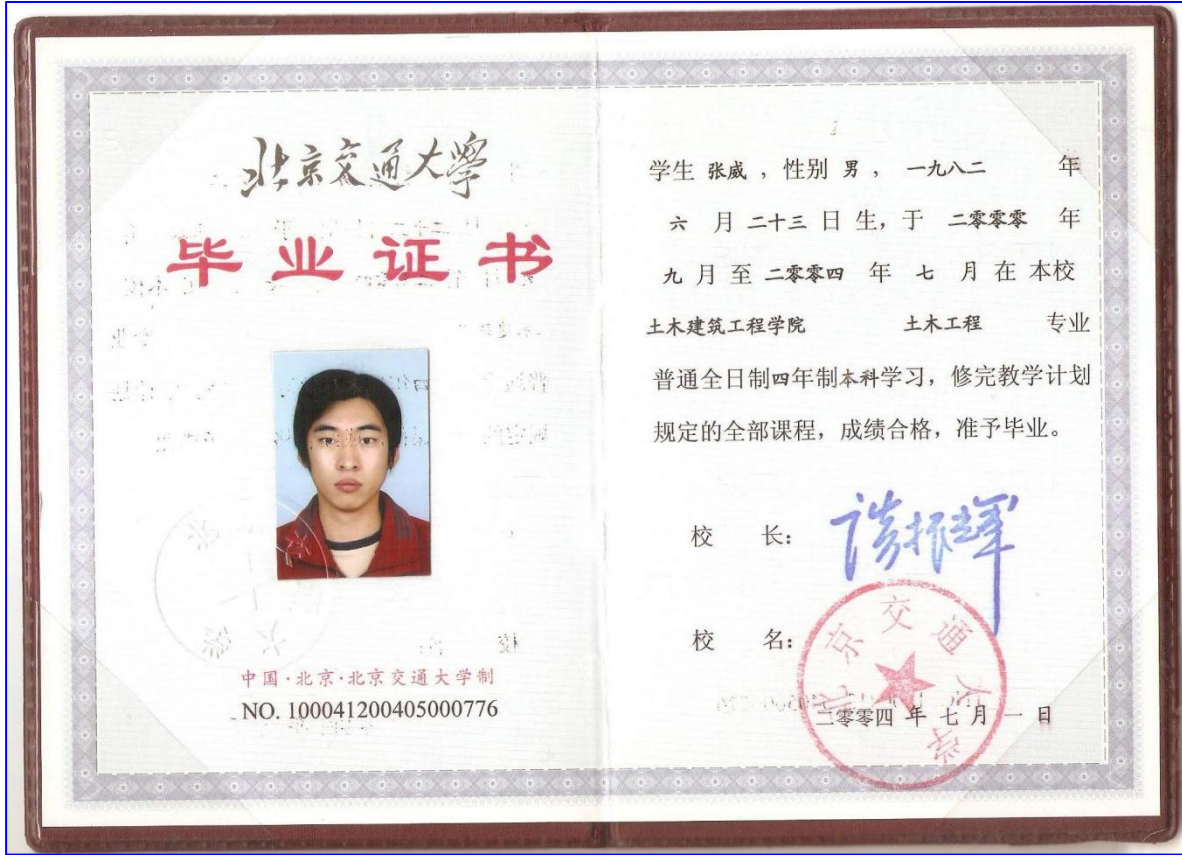 北京交通大學
毕业证书
中国·北京·北京交通大学制
NO. 100041200405000776
学生 张威 ，性别 男 ， 一九八二 年
六 月 二十三 日 生, 于 二零零零 年
九 月 至 二零零四 年 七 月 在 本校
土木建筑工程学院 土木工程 专业
普通全日制四年制本科学习，修完教学计划
规定的全部课程，成绩合格，准予毕业。
校 长： 谈振辉
校 名：
北京交通大学
二零零四 年 七 月 一 日